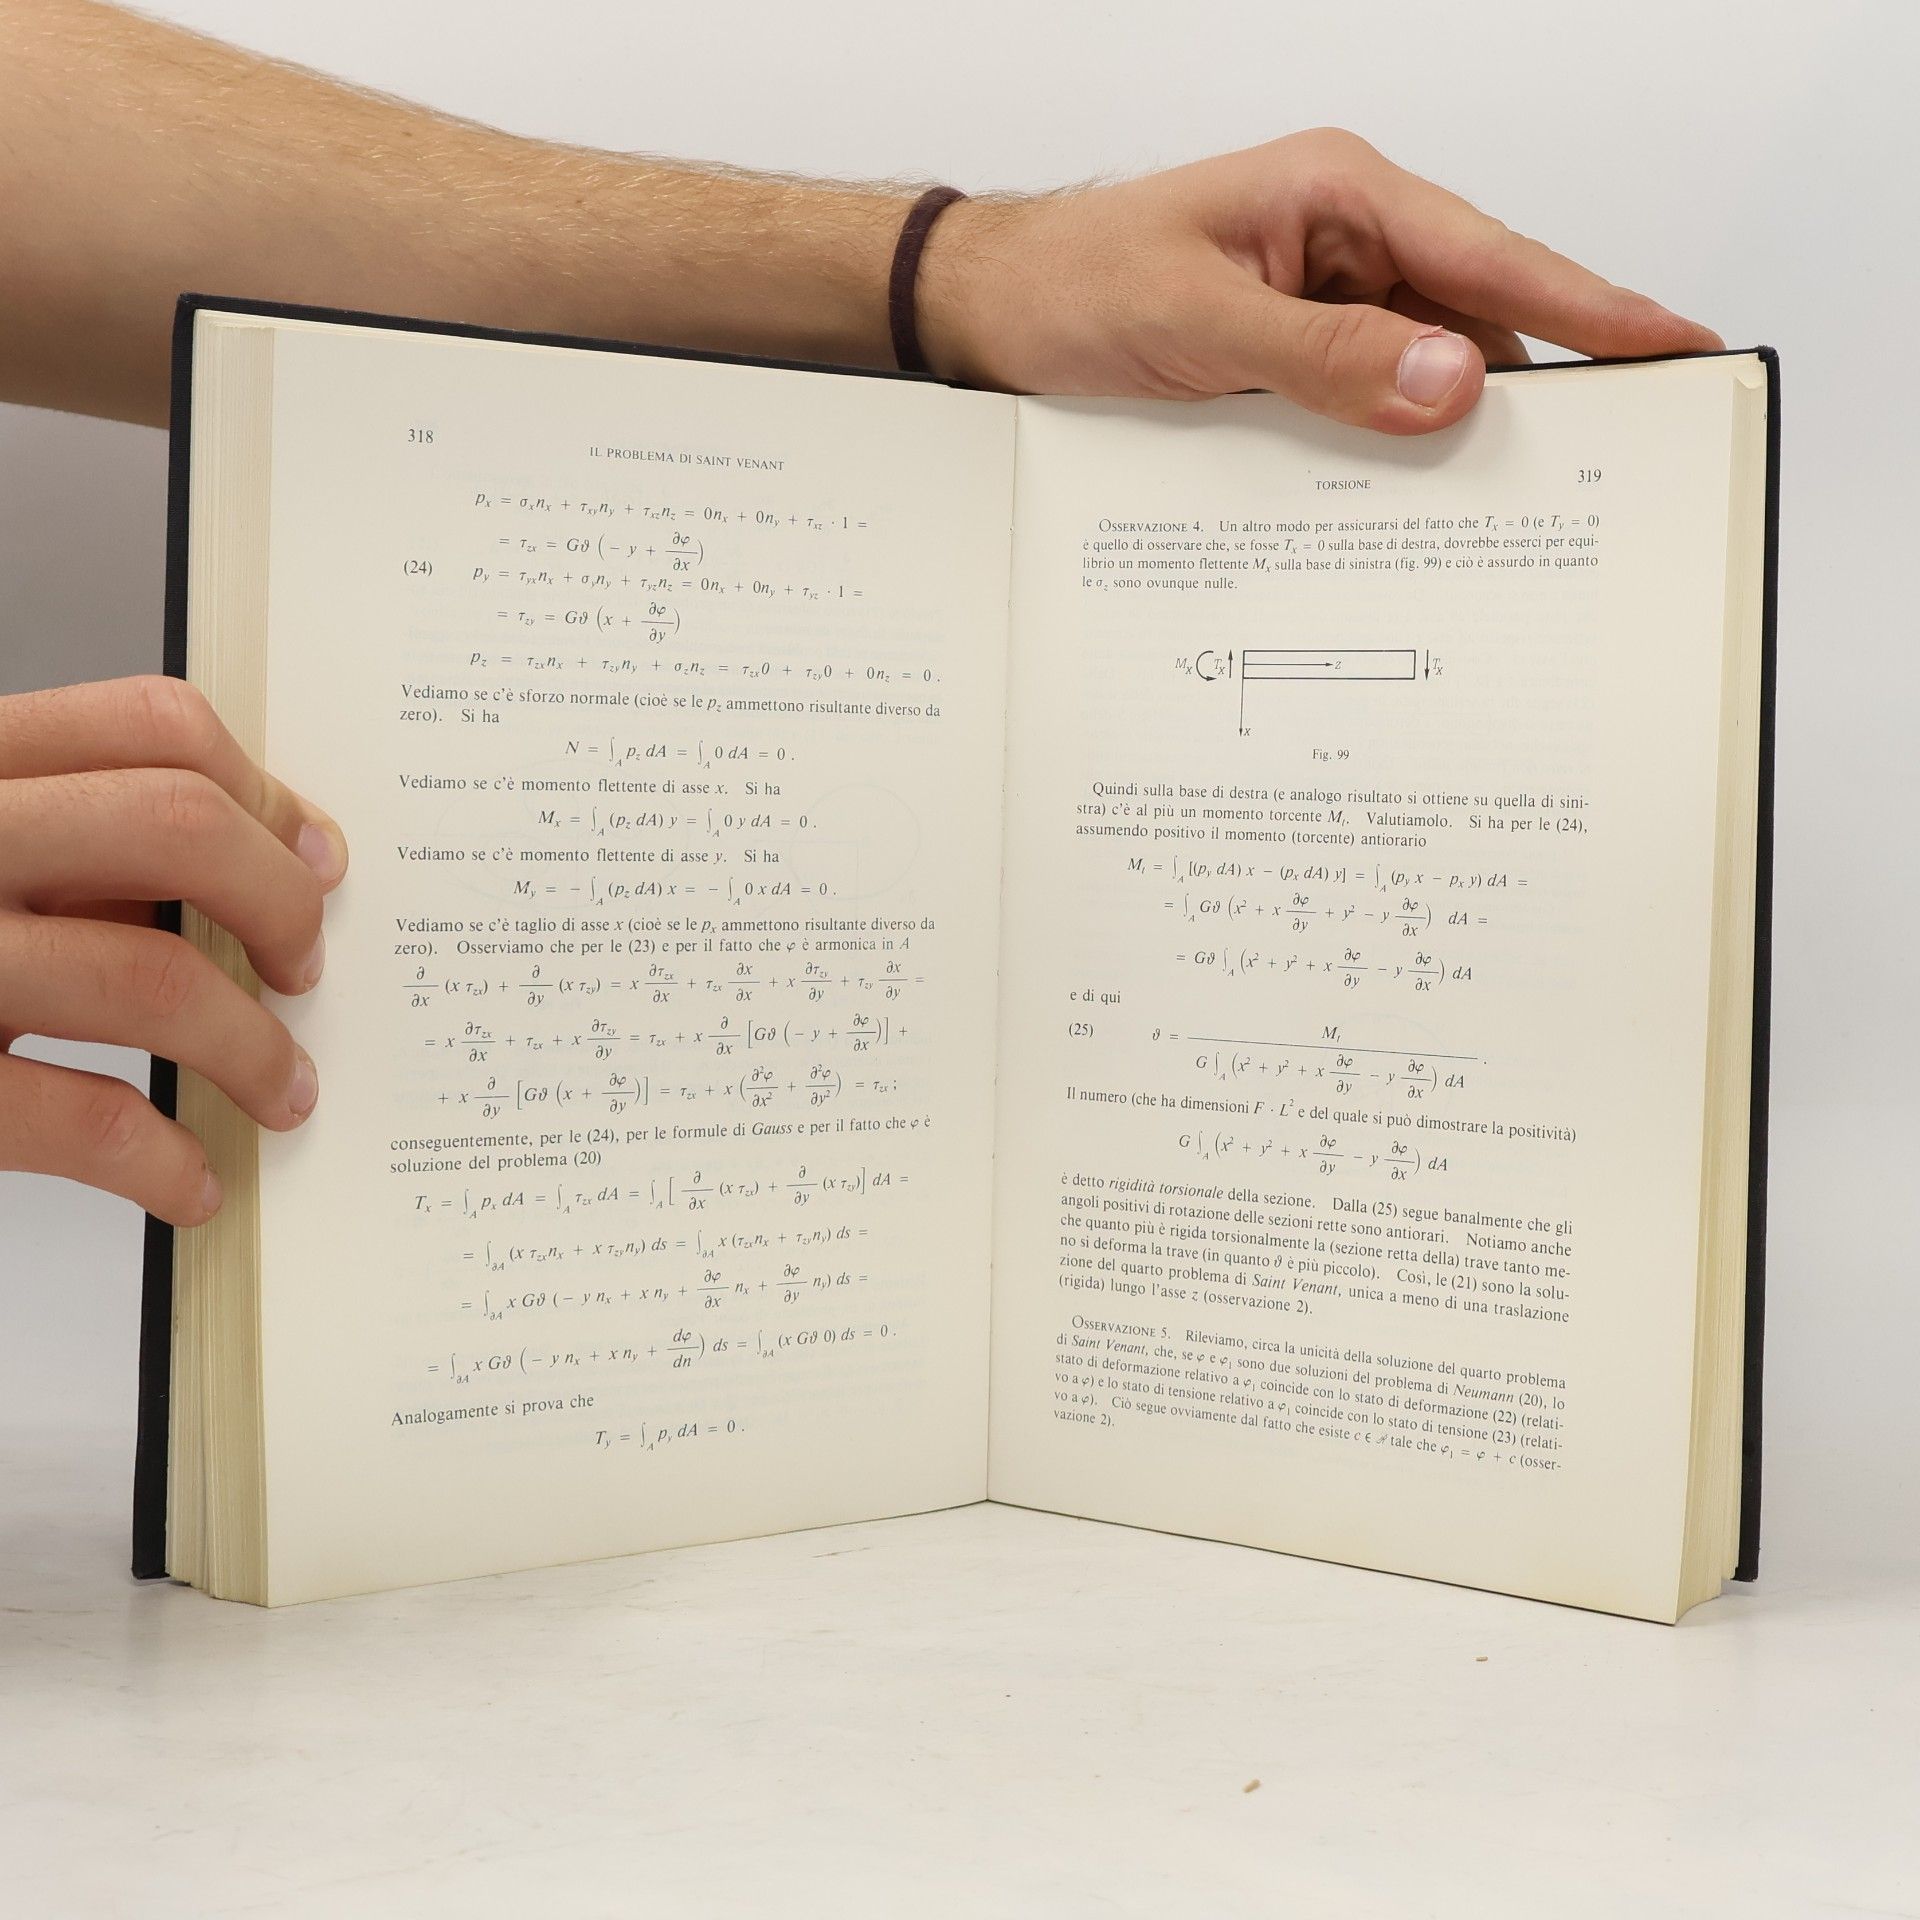 318
IL PROBLEMA DI SAINT VENANT
pₓ = σₓnₓ + τₓᵧnᵧ + τ_xz n_z = 0nₓ + 0nᵧ + τ_xz · 1 =
= τ_zx = Gϑ (− y + ∂φ/∂x)
(24) p_y = τ_yx n_x + σ_y n_y + τ_yz n_z = 0n_x + 0n_y + τ_yz · 1 =
= τ_zy = Gϑ (x + ∂φ/∂y)
p_z = τ_zx n_x + τ_zy n_y + σ_z n_z = τ_zx 0 + τ_zy 0 + 0n_z = 0 .
Vediamo se c'è sforzo normale (cioè se le p_z ammettono risultante diverso da
zero). Si ha
N = ∫_A p_z dA = ∫_A 0 dA = 0 .
Vediamo se c'è momento flettente di asse x. Si ha
M_x = ∫_A (p_z dA) y = ∫_A 0 y dA = 0 .
Vediamo se c'è momento flettente di asse y. Si ha
M_y = − ∫_A (p_z dA) x = − ∫_A 0 x dA = 0 .
Vediamo se c'è taglio di asse x (cioè se le p_x ammettono risultante diverso da
zero). Osserviamo che per le (23) e per il fatto che φ è armonica in A
∂/∂x (x τ_zx) + ∂/∂y (x τ_zy) = x ∂τ_zx/∂x + τ_zx ∂x/∂x + x ∂τ_zy/∂y + τ_zy ∂x/∂y =
= x ∂τ_zx/∂x + τ_zx + x ∂τ_zy/∂y = τ_zx + x ∂/∂x [Gϑ (− y + ∂φ/∂x)] +
+ x ∂/∂y [Gϑ (x + ∂φ/∂y)] = τ_zx + x (∂²φ/∂x² + ∂²φ/∂y²) = τ_zx ;
conseguentemente, per le (24), per le formule di Gauss e per il fatto che φ è
soluzione del problema (20)
T_x = ∫_A p_x dA = ∫_A τ_zx dA = ∫_A [∂/∂x (x τ_zx) + ∂/∂y (x τ_zy)] dA =
= ∫_∂A (x τ_zx n_x + x τ_zy n_y) ds = ∫_∂A x (τ_zx n_x + τ_zy n_y) ds =
= ∫_∂A x Gϑ (− y n_x + x n_y + ∂φ/∂x n_x + ∂φ/∂y n_y) ds =
= ∫_∂A x Gϑ (− y n_x + x n_y + dφ/dn) ds = ∫_∂A (x Gϑ 0) ds = 0 .
Analogamente si prova che
T_y = ∫_A p_y dA = 0 .
TORSIONE
319
OSSERVAZIONE 4. Un altro modo per assicurarsi del fatto che T_x = 0 (e T_y = 0)
è quello di osservare che, se fosse T_x = 0 sulla base di destra, dovrebbe esserci per equi-
librio un momento flettente M_x sulla base di sinistra (fig. 99) e ciò è assurdo in quanto
le σ_z sono ovunque nulle.
M_x T_x z T_x
x
Fig. 99
Quindi sulla base di destra (e analogo risultato si ottiene su quella di sini-
stra) c'è al più un momento torcente M_t. Valutiamolo. Si ha per le (24),
assumendo positivo il momento (torcente) antiorario
M_t = ∫_A [(p_y dA) x − (p_x dA) y] = ∫_A (p_y x − p_x y) dA =
= ∫_A Gϑ (x² + x ∂φ/∂y + y² − y ∂φ/∂x) dA =
= Gϑ ∫_A (x² + y² + x ∂φ/∂y − y ∂φ/∂x) dA
e di qui
(25) ϑ = M_t / G ∫_A (x² + y² + x ∂φ/∂y − y ∂φ/∂x) dA .
Il numero (che ha dimensioni F · L² e del quale si può dimostrare la positività)
G ∫_A (x² + y² + x ∂φ/∂y − y ∂φ/∂x) dA
è detto rigidità torsionale della sezione. Dalla (25) segue banalmente che gli
angoli positivi di rotazione delle sezioni rette sono antiorari. Notiamo anche
che quanto più è rigida torsionalmente la (sezione retta della) trave tanto me-
no si deforma la trave (in quanto ϑ è più piccolo). Così, le (21) sono la solu-
zione del quarto problema di Saint Venant, unica a meno di una traslazione
(rigida) lungo l'asse z (osservazione 2).
OSSERVAZIONE 5. Rileviamo, circa la unicità della soluzione del quarto problema
di Saint Venant, che, se φ e φ₁ sono due soluzioni del problema di Neumann (20), lo
stato di deformazione relativo a φ₁ coincide con lo stato di deformazione (22) (relati-
vo a φ) e lo stato di tensione relativo a φ₁ coincide con lo stato di tensione (23) (relati-
vo a φ). Ciò segue ovviamente dal fatto che esiste c ∈ ℛ tale che φ₁ = φ + c (osser-
vazione 2).